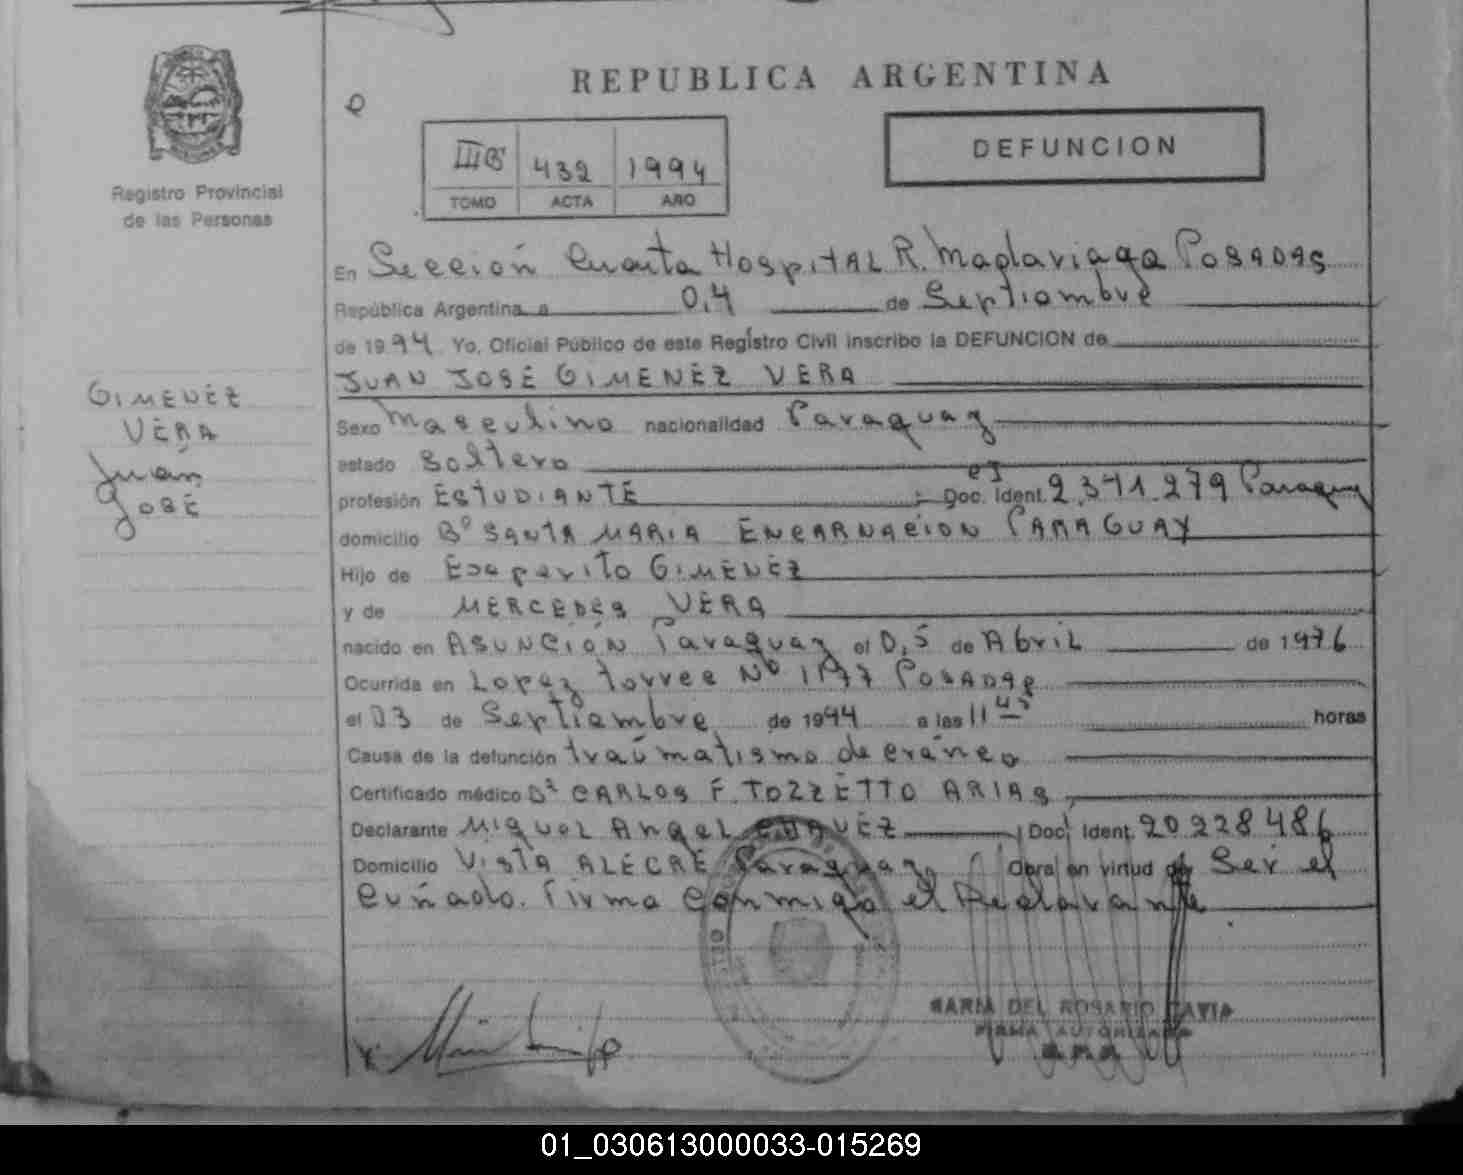 REPUBLICA ARGENTINA
DEFUNCION
Registro Provincial
de las Personas
III B 432 1994
TOMO ACTA AÑO
En Sección Cuarta Hospital R. Madariaga Posadas
República Argentina a 0,4 de Septiembre
de 1994 Yo, Oficial Público de este Registro Civil inscribo la DEFUNCION de
JUAN JOSÉ GIMENÉZ VERA
GIMENÉZ
VÉRA
Juan
José
Sexo Masculino nacionalidad Paraguay
estado Soltero
profesión ESTUDIANTE Doc. Ident. CI 2.341.279 Paraguay
domicilio Bº SANTA MARIA ENCARNACION PARAGUAY
Hijo de GIMENÉZ
y de MERCEDES VERA
nacido en ASUNCIÓN Paraguay el 0,5 de Abril de 1976
Ocurrida en Lopez torres Nº 1177 POSADAS
el 03 de Septiembre de 1994 a las 11 45 horas
Causa de la defunción traumatismo de cráneo
Certificado médico Dr CARLOS F. TOZZETTO ARIAS
Declarante Miguel Angel CHAVEZ Doc. Ident. 20 228 486
Domicilio VISTA ALEGRE Paraguay Obra en virtud de Ser el
Cuñado. Firma Conmigo el Declarante
MARIA DEL ROSARIO TAVIA
FIRMA AUTORIZADA
01_030613000033-015269